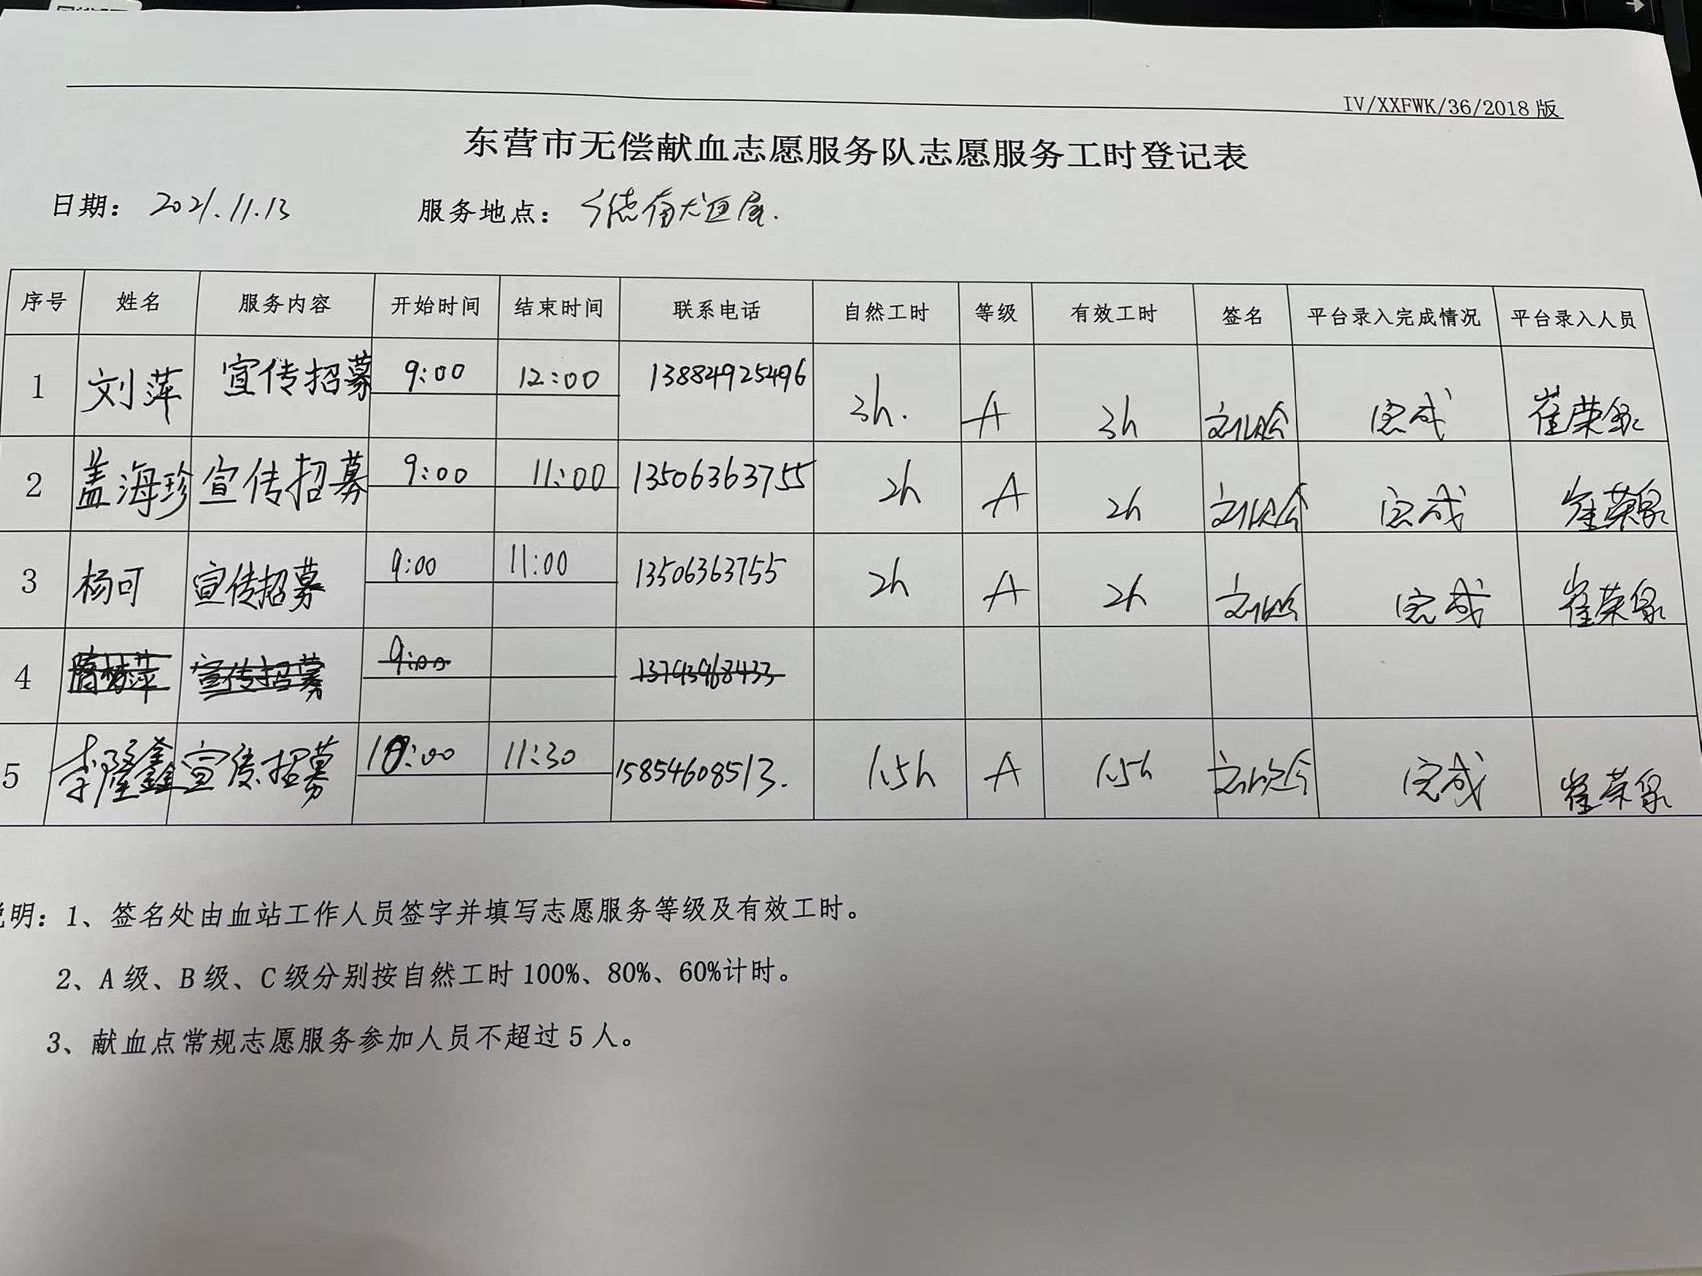 IV/XXFWK/36/2018 版
东营市无偿献血志愿服务队志愿服务工时登记表
日期： 2021.11.13 服务地点：
序号 姓名 服务内容 开始时间 结束时间 联系电话 自然工时 等级 有效工时 签名 平台录入完成情况 平台录入人员
1 刘萍 宣传招募 9:00 12:00 13884925496 3h. A 3h 完成 崔荣泉
2 盖海珍 宣传招募 9:00 11:00 13506363755 2h A 2h 完成 崔荣泉
3 杨可 宣传招募 9:00 11:00 13506363755 2h A 2h 完成 崔荣泉
4 宣传招募 9:00
5 李隆鑫 宣传招募 10:00 11:30 15854608513. 1.5h A 1.5h 完成 崔荣泉
明：1、签名处由血站工作人员签字并填写志愿服务等级及有效工时。
2、A 级、B 级、C 级分别按自然工时 100%、80%、60%计时。
3、献血点常规志愿服务参加人员不超过 5 人。